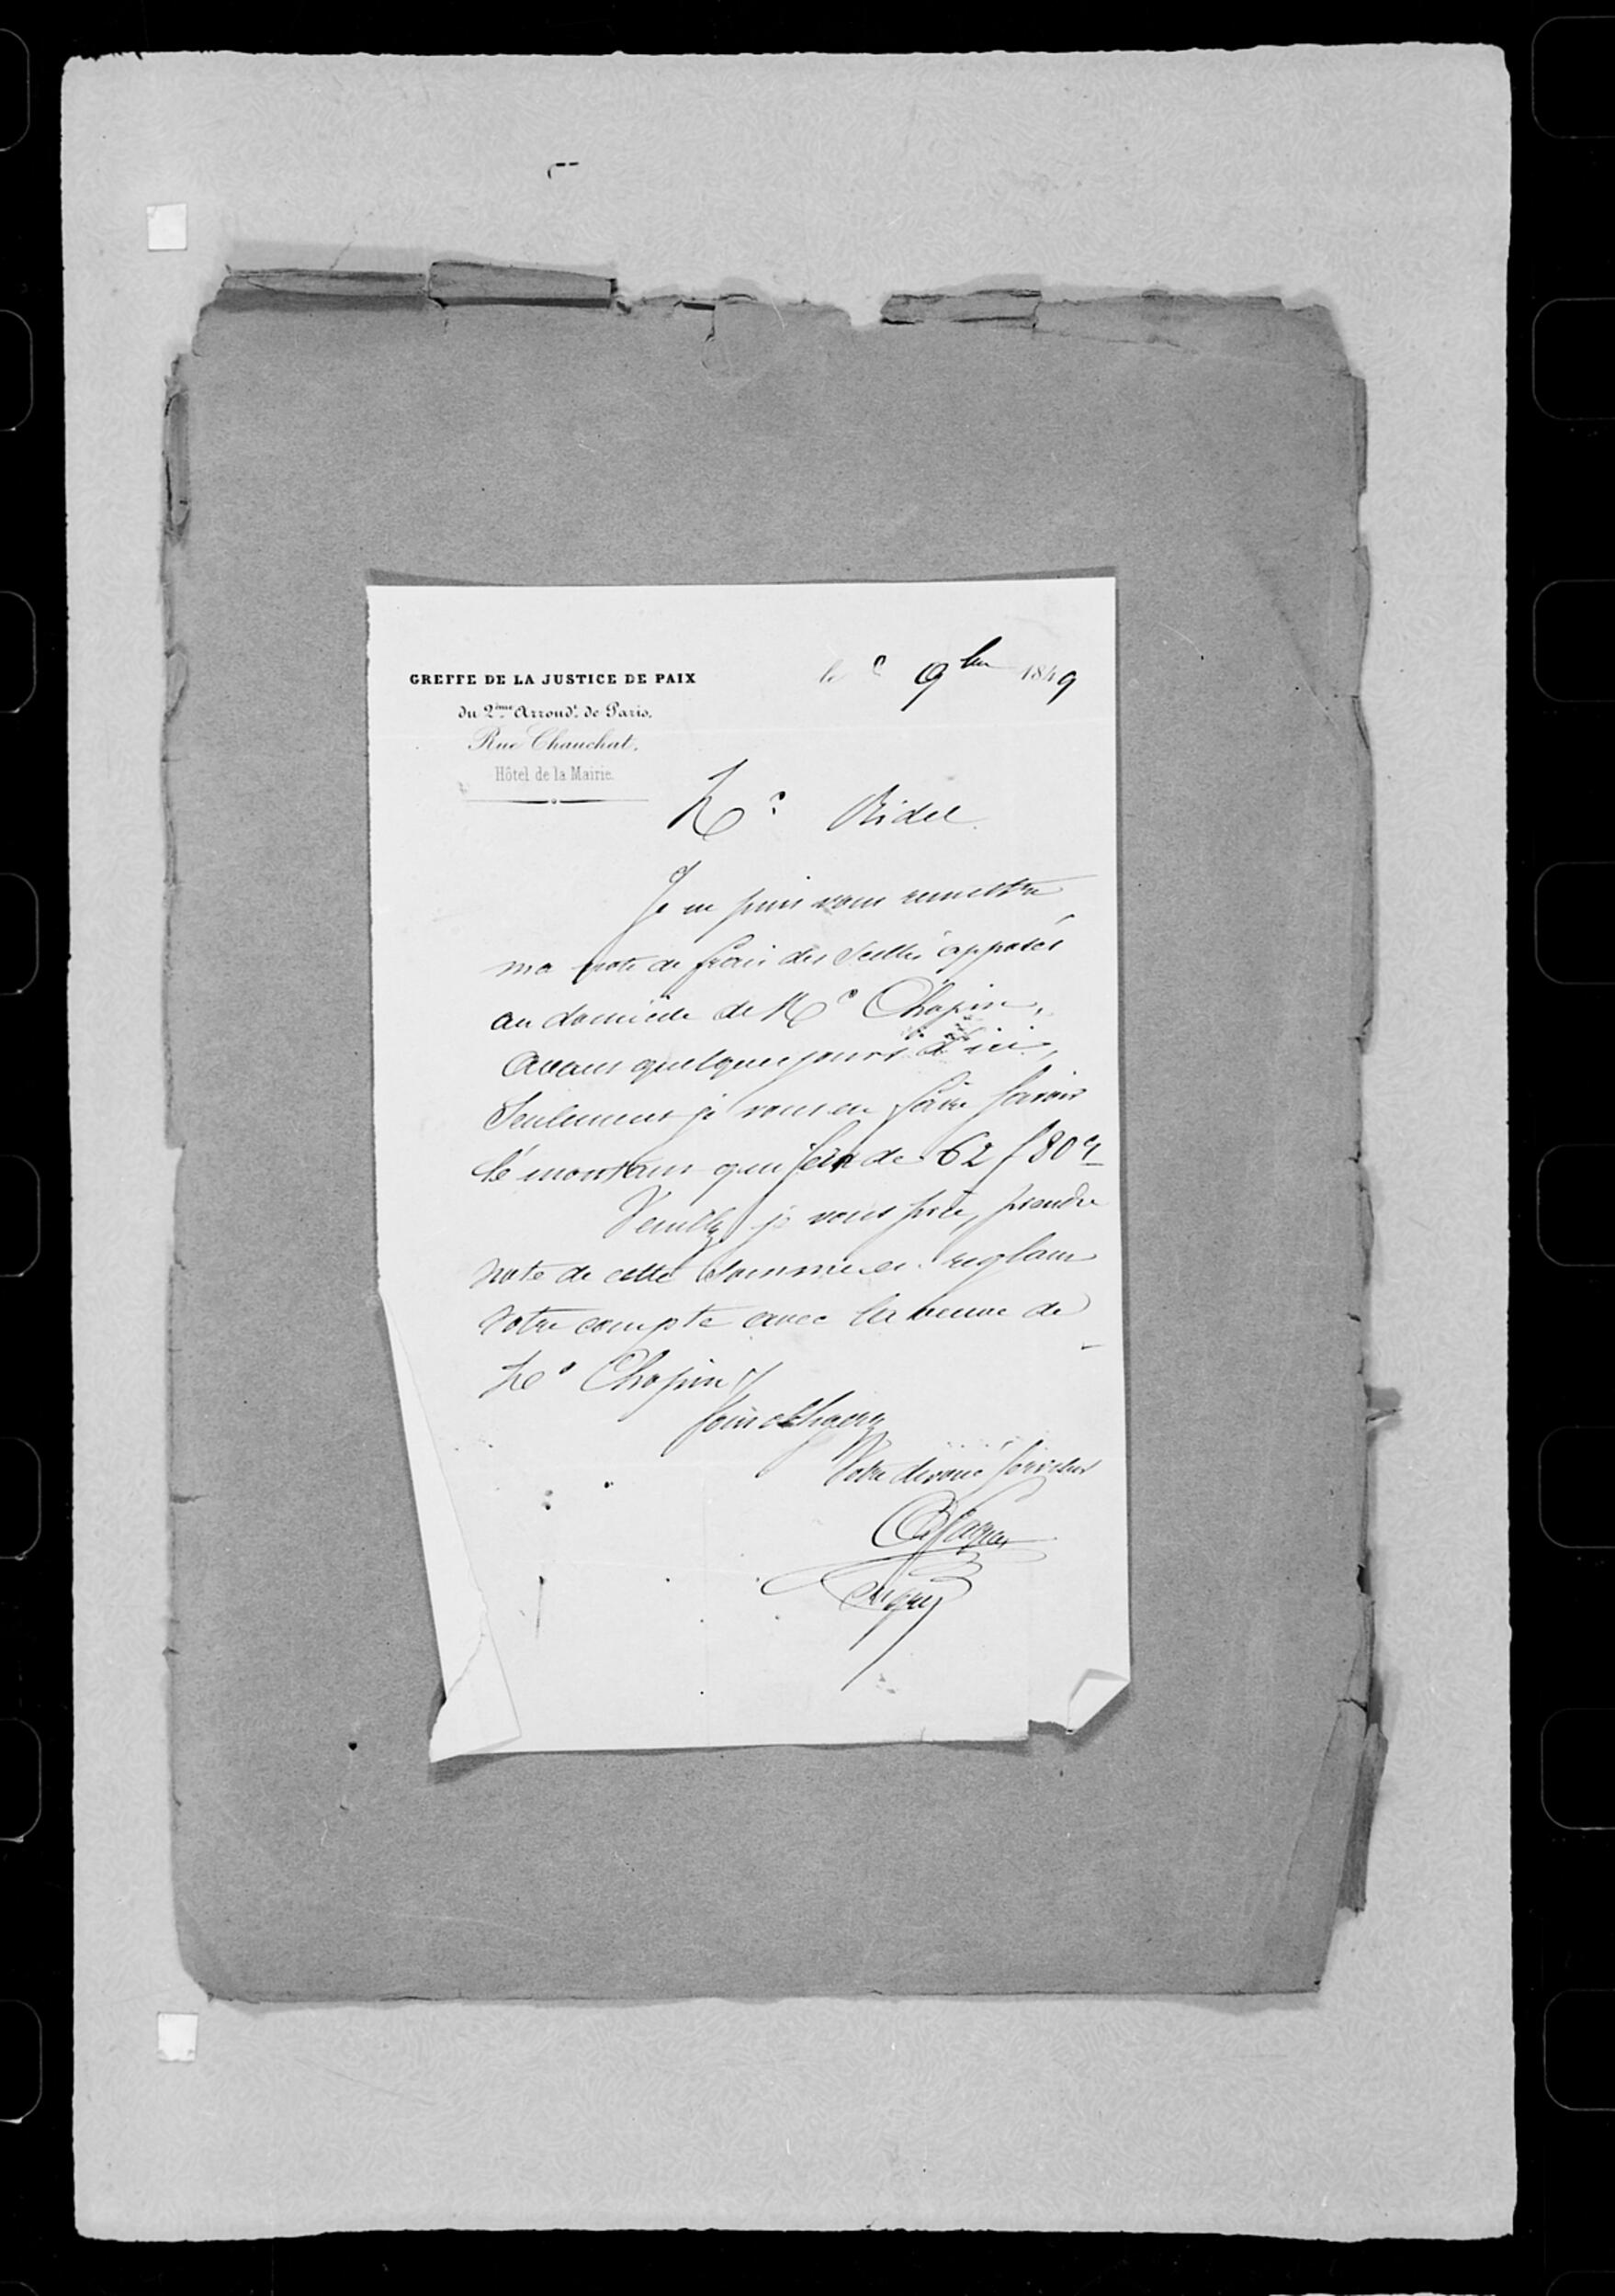 GREFFE DE LA JUSTICE DE PAIX
du 2ème Arrondt. de Paris,
Rue Chauchat,
Hôtel de la Mairie.
le 9bre 1849
Mr Ridel
Je ne puis vous remettre
ma note de frais des Scellés apposés
au domicile de Mr Chopin,
Avant quelques jours d'ici,
Seulement je vous en faire savoir
le montant qui sera de 62 f 80 c
Veuillez je vous prie, prendre
note de cette somme en reglant
votre compte avec la
Mr Chopin
Votre devoué serviteur